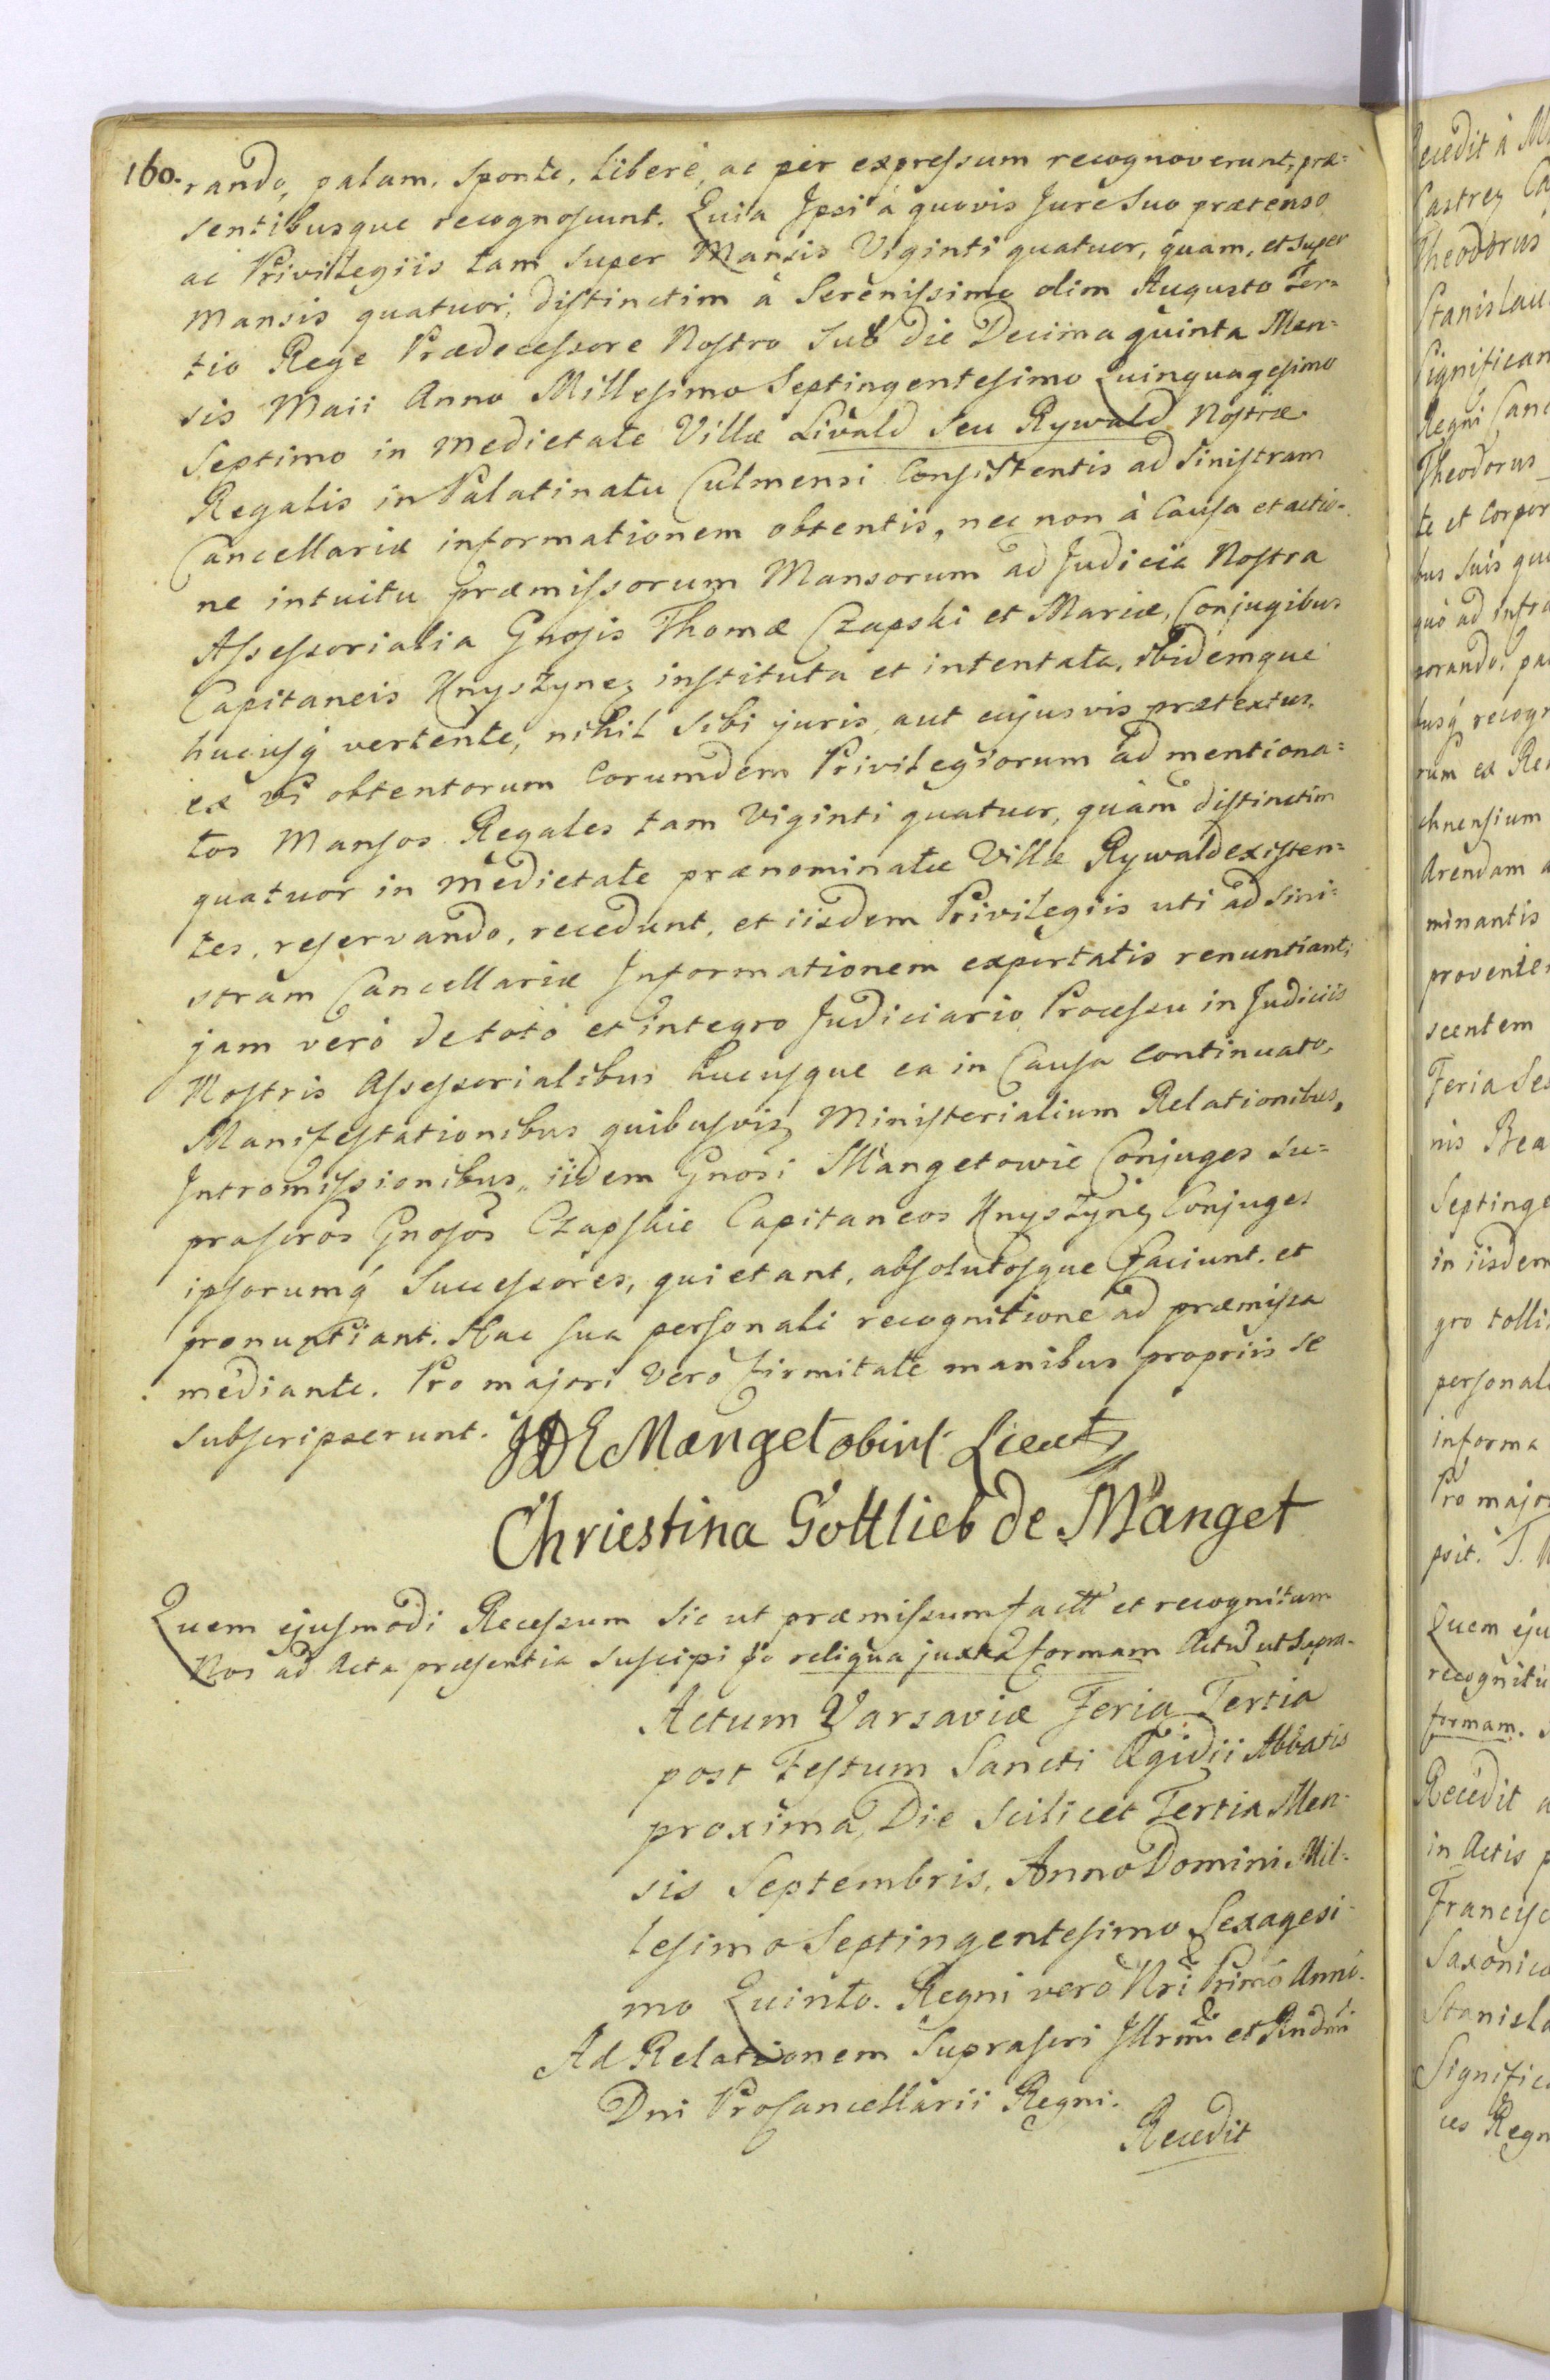 160. rando, palam, sponte, liberè, ac per expressum recognoverunt, præ=
sentibusque recognoscunt. Quia Ipsi à quovis Jure Suo prætenso
ac Privilegiis tam super Mansis Viginti quatuor, quam, et super
mansis quatuor, distinctim à Serenissimo olim Augusto Ter=
tio Rege Prædecessore Nostro sub die Decima quinta Men=
sis Maii Anno Millesimo Septingentesimo Quinquagesimo
Septimo in medietate Villæ Livald seu Rywald Nostræ
Regalis in Palatinatu Culmensi Consistentis ad sinistram
Cancellariæ informationem obtentis, nec non à Causa et actio=
ne intuitu præmissorum Mansorum ad Judicia Nostra
Assessorialia Gnosis Thomæ Czapski et Mariæ, Conjugibus
Capitaneis Knyszynez instituta et intentata, ibidemque
hucusq́ vertente, nihil sibi juris, aut cujusvis prætextus,
ex vi obtentorum eorumdem Privilegiorum ad mentiona=
tos Mansos Regales tam Viginti quatuor, quàm distinctim
quatuor in medietate prænominatæ Villæ Rywald existen=
tes, reservando, recedunt, et iisdem Privilegiis uti ad sini=
stram Cancellariæ Informationem expertatis renuntiant;
jam verò de toto et integro Judiciario Processu in Judiciis
Nostris Assessorialibus hucusque ea in Causa continuato,
Manifestationibus quibusvis, Ministerialium Relationibus,
Intromissionibus, iidem Gnosi Mangetowie Conjuges su=
prascros Gnosos Czapskie Capitaneos Knyszynez Conjuges
ipsorumq́ Successores, quietant, absolutosque faciunt, et
pronuntiant. Hac sua personali recognitione ad præmissa
mediante. Pro majori verò firmitate manibus propriis se
subscripserunt.
Manget obirst Lieut
Chriestina Gottlieb de Manget
Quem ejusmodi Recessum sic ut præmissum factt et recognitum
Nos ad Acta præsentia suscipi reliqua juxta formam Actû ut supra.
Actum Varsaviæ Feria Tertia
post Festum Sancti Ægidii Abbatis
proxima, Die scilicet Tertia Men=
sis Septembris, Anno Domini Mil=
lesimo Septingentesimo Sexagesi=
mo Quinto. Regni verò Nri Primo Anno.
Ad Relationem Suprascri Illrmi et Rndmi
Dni Procancellarii Regni.
Recedit
ecedit à
Castrez
Theodorus
Stanislau
Significan
Regni Canc
Theodorus
te et Corpor
bus suis
quò ad infra
rorando, pa
busq́ recogn
rum ex
chnensium
Arendam
minantis
provente
scentem
Feria
nis Bea
Septinge
in iisdem
gro tolli
personal
informa
Pro major
psit.
Quem eju
recognitu
formam.
Recedit
in Actis
Francisc
Saxonico
Stanisla
Signific
ces Regn